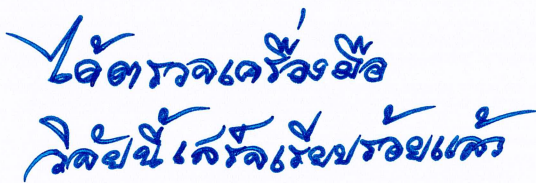 ได้ตรวจเครื่องมือ
วิจัยนี้เสร็จเรียบร้อยแล้ว